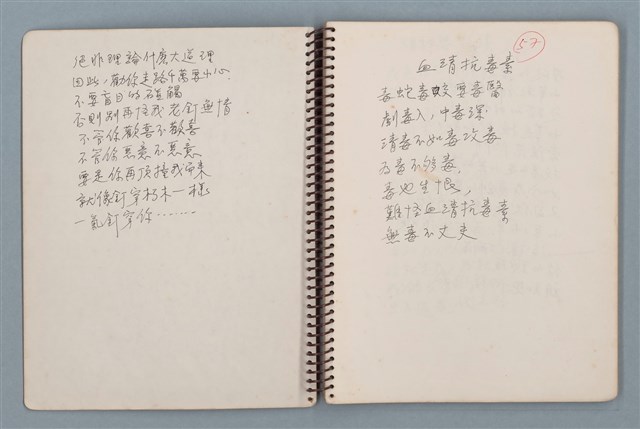 絕非理論什麼大道理
因此，勸你走路千萬要小心，
不要盲目的碰觸
否則別再怪我老釘無情
不管你歡喜不歡喜
不管你惡意不惡意
要是你再頂撞我而來
就像釘穿朽木一樣
一氣釘穿你……
57
血清抗毒素
毒蛇毒蛟要毒醫
劇毒入，中毒深
清毒不如毒攻毒
為毒不够毒，
毒也生恨，
難怪血清抗毒素
無毒不丈夫